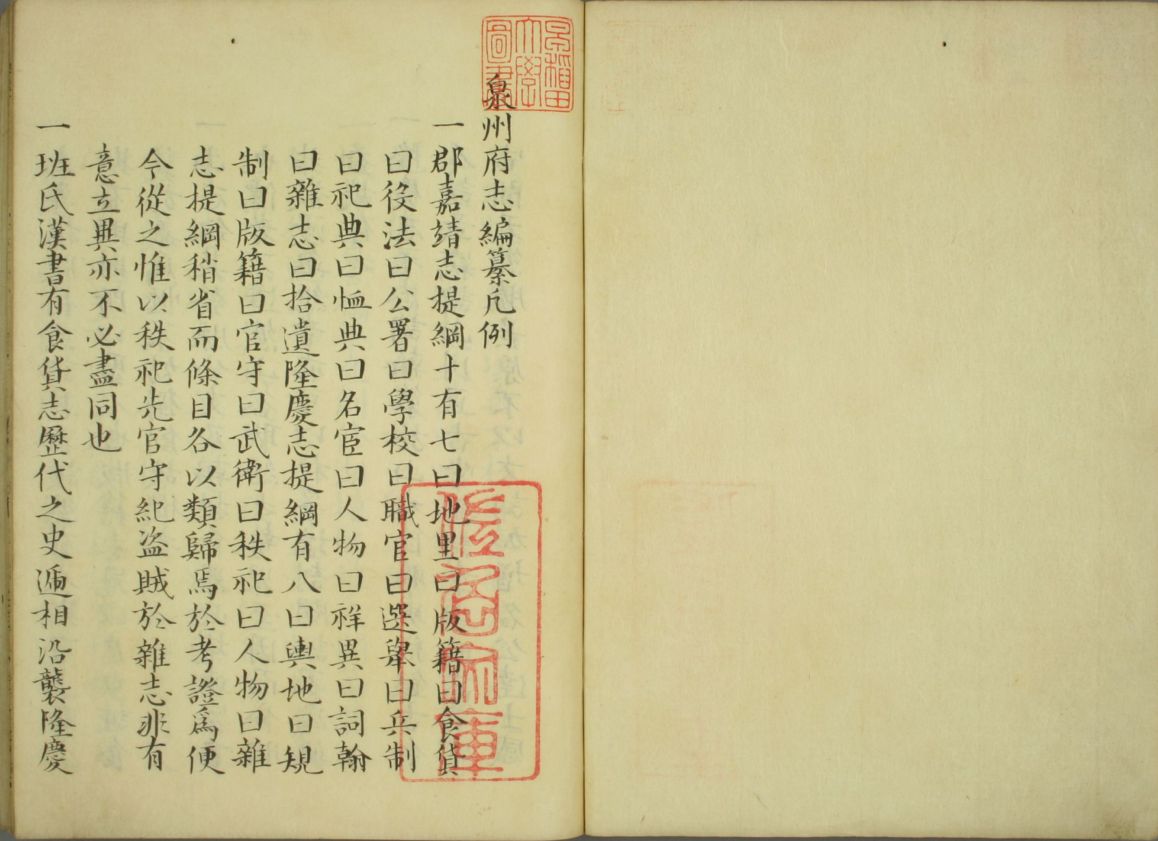 泉州府志編纂凡例
一郡嘉靖志提綱十有七曰地里曰版籍曰食貨
曰役法曰公署曰學校曰職官曰選舉曰兵制
曰祀典曰恤典曰名宦曰人物曰祥異曰詞翰
曰雜志曰拾遺隆慶志提綱有八曰輿地曰規
制曰版籍曰官守曰武衛曰秩祀曰人物曰雜
志提綱稍省而條目各以類歸焉於考證爲便
今從之惟以秩祀先官守紀盜賊於雜志非有
意立異亦不必盡同也
一班氏漢書有食貨志歷代之史遞相沿襲隆慶
早稲田大學圖書